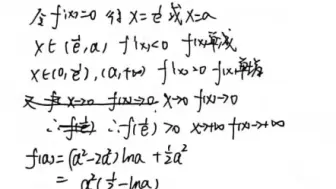 令f'(x)=0 得 x=1/e 或 x=a
x∈(1/e,a) f'(x)<0 f(x)单减
x∈(0,1/e),(a,+∞) f'(x)>0 f(x)单增
又 x→0 f(x)→0 x→0 f(x)→0
∴f(1/e) ∴f(1/e)>0 x→+∞ f(x)→+∞
f(a)=(a²-2a²)lna+½a²
=a²(½-lna)